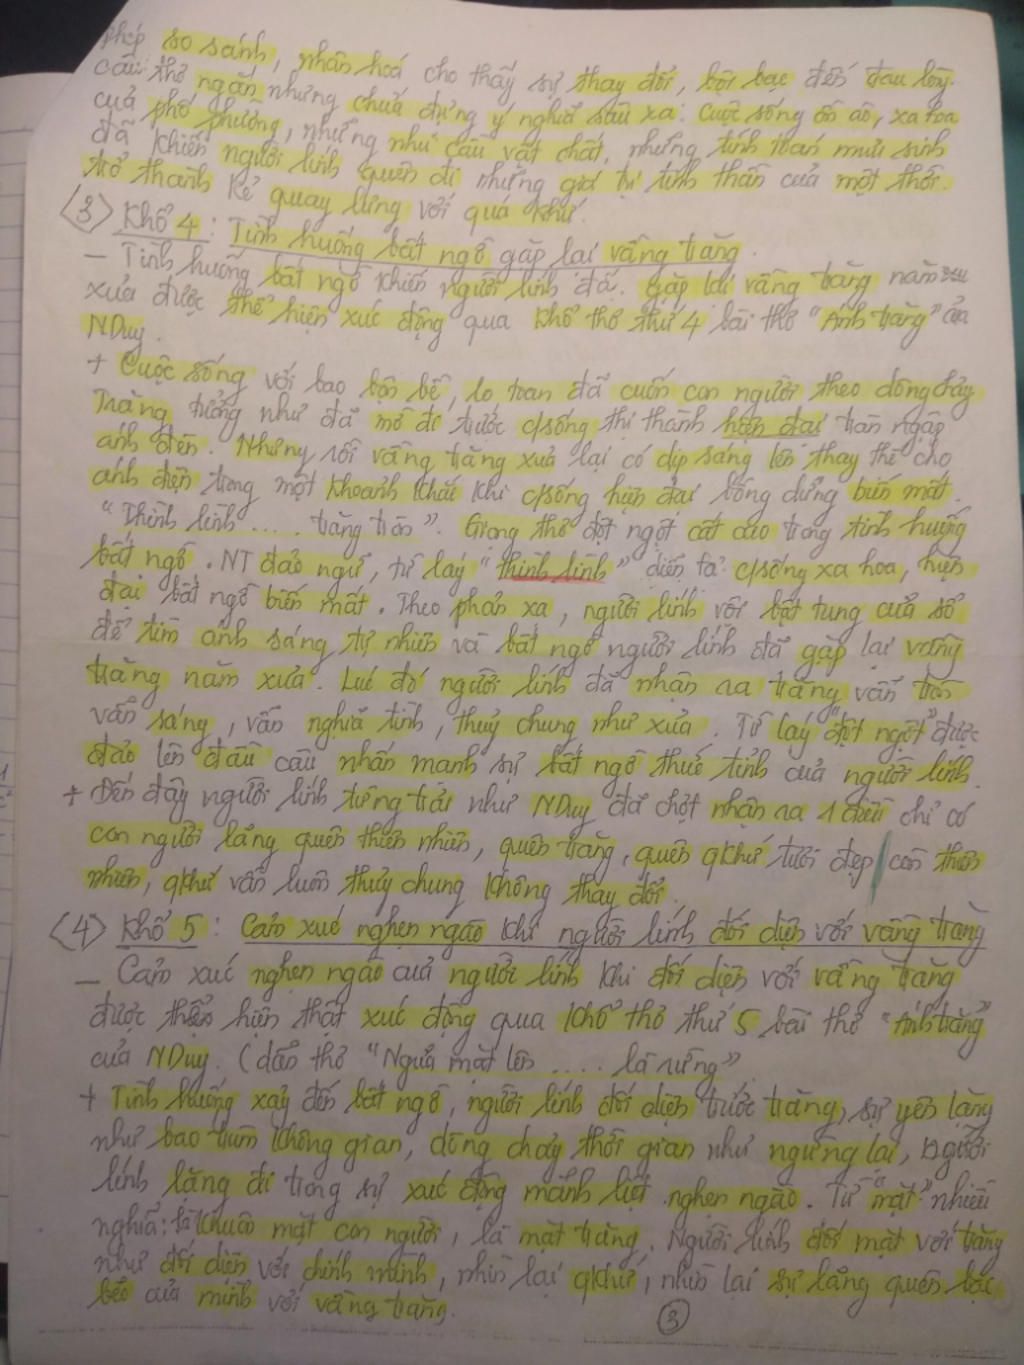 phép so sánh, nhân hoá cho thấy sự thay đổi, bội bạc đến đau lòng.
câu thơ ngắn nhưng chứa đựng ý nghĩa sâu xa: Cuộc sống ồn ào, xa hoa
của phố phường, những nhu cầu vật chất, những tính toán mưu sinh
đã khiến người lính quên đi những giá trị tinh thần của một thời.
trở thành kẻ quay lưng với quá khứ.
<3> Khổ 4 : Tình huống bất ngờ gặp lại vầng trăng.
– Tình huống bất ngờ khiến người lính đã gặp lại vầng trăng năm
xưa được thể hiện xúc động qua khổ thơ thứ 4 bài thơ "Ánh trăng" của
NDuy.
+ Cuộc sống với bao bộn bề, lo toan đã cuốn con người theo dòng chảy
Trăng tưởng như đã mờ đi trước c/sống thị thành hiện đại tràn ngập
ánh đèn. Nhưng rồi vầng trăng xưa lại có dịp sáng lên thay thế cho
ánh điện trong một khoảnh khắc khi c/sống hiện đại bỗng dưng biến mất.
"Thình lình .... trăng tròn". Giọng thơ đột ngột cất cao trong tình huống
bất ngờ. NT đảo ngữ, từ láy "thình lình" diễn tả c/sống xa hoa, hiện
đại bất ngờ biến mất. Theo phản xạ, người lính vội bật tung cửa sổ
để tìm ánh sáng tự nhiên và bất ngờ người lính đã gặp lại vầng
trăng năm xưa. Lúc đó người lính đã nhận ra trăng vẫn tròn
vẫn sáng, vẫn nghĩa tình, thuỷ chung như xưa. Từ láy "đột ngột" được
đảo lên đầu câu nhấn mạnh sự bất ngờ thức tỉnh của người lính.
+ Đến đây người lính từng trải như NDuy đã chợt nhận ra 1 điều chỉ có
con người lãng quên thiên nhiên, quên trăng, quên qkhứ tươi đẹp còn thiên
nhiên, qkhứ vẫn luôn thuỷ chung không thay đổi.
<4> Khổ 5 : Cảm xúc nghẹn ngào khi người lính đối diện với vầng trăng
– Cảm xúc nghẹn ngào của người lính khi đối diện với vầng trăng
được thể hiện thật xúc động qua khổ thơ thứ 5 bài thơ "Ánh trăng"
của NDuy. (dẫn thơ "Ngửa mặt lên .... là rừng"
+ Tình huống xảy đến bất ngờ, người lính đối diện trước trăng, sự yên lặng
như bao trùm không gian, dòng chảy thời gian như ngừng lại, người
lính lặng đi trong sự xúc động mãnh liệt nghẹn ngào. Từ "mặt" nhiều
nghĩa: là khuôn mặt con người, là mặt trăng. Người lính đối mặt với trăng
như đối diện với chính mình, nhìn lại qkhứ, nhìn lại sự lãng quên bạc
bẽo của mình với vầng trăng.
3